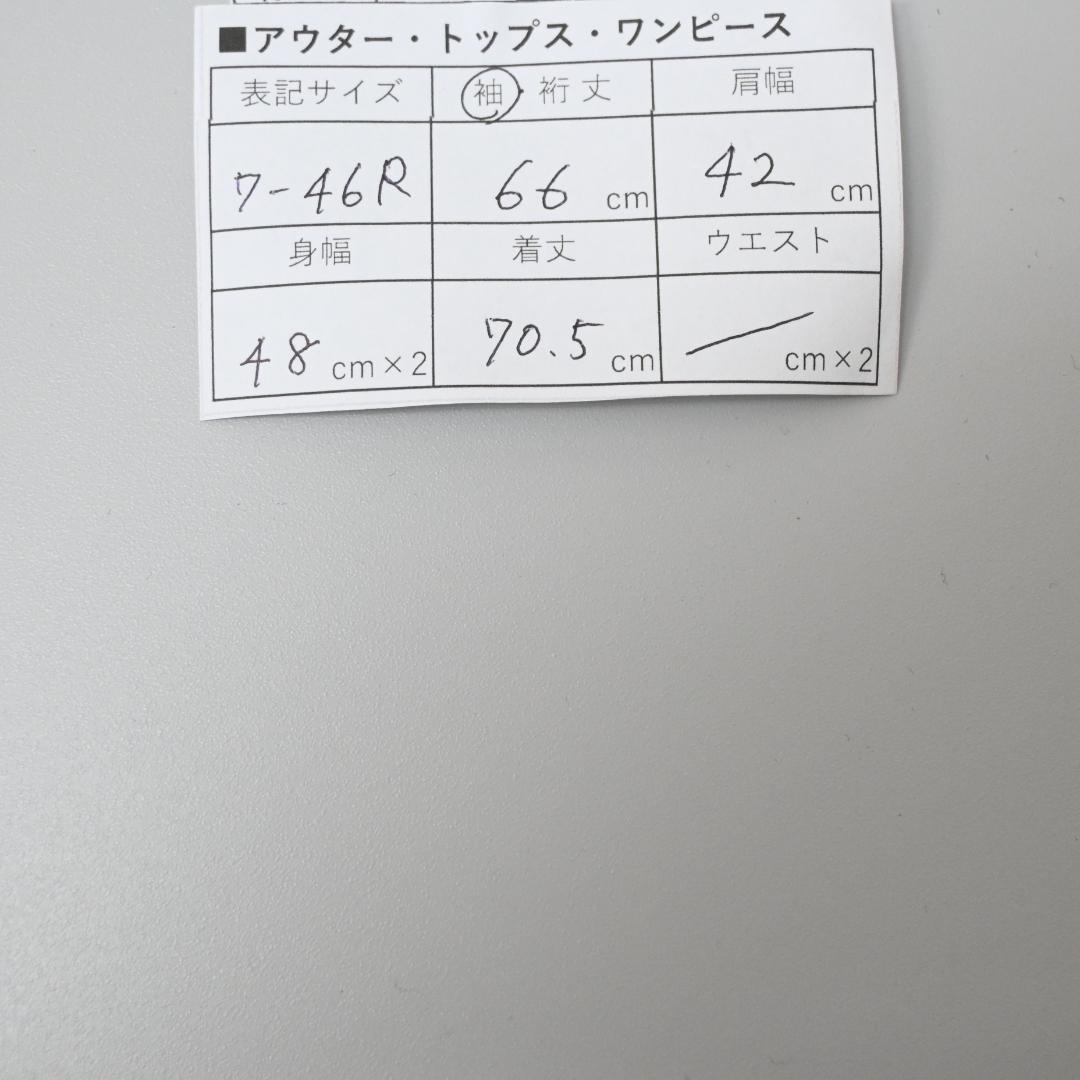 ■アウター・トップス・ワンピース
表記サイズ 袖・裄丈 肩幅
7-46R 66 cm 42 cm
身幅 着丈 ウエスト
48 cm×2 70.5 cm cm×2